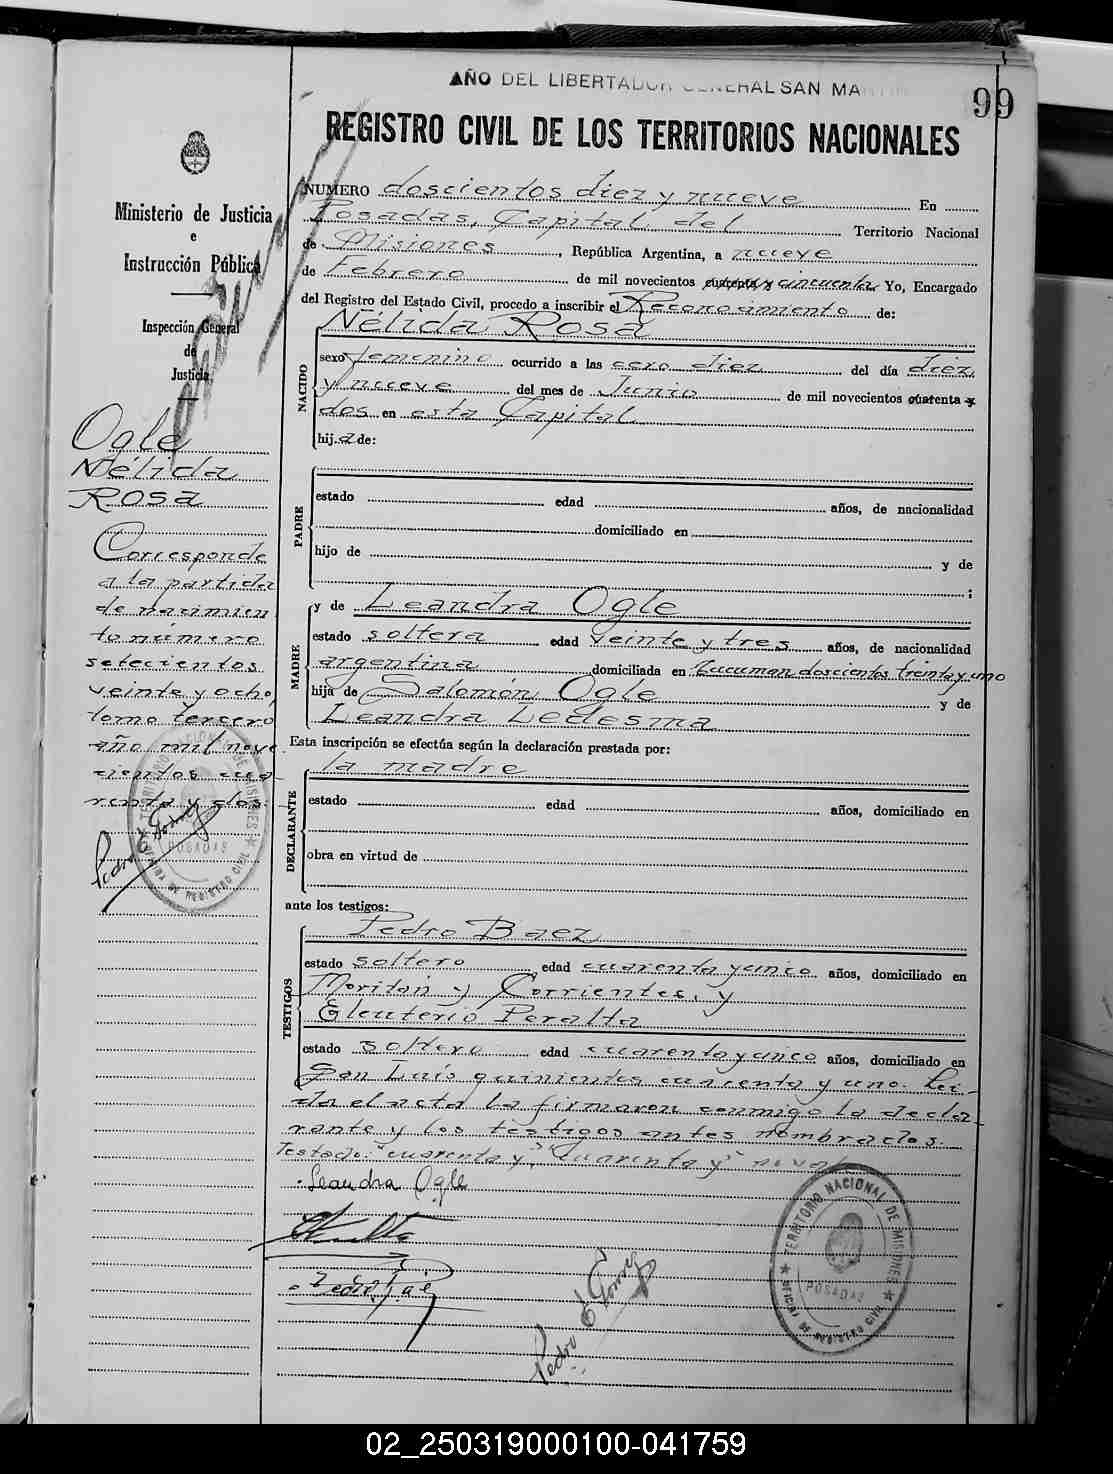 AÑO DEL LIBERTADOR GENERAL SAN MA
99
REGISTRO CIVIL DE LOS TERRITORIOS NACIONALES
Ministerio de Justicia
e
Instrucción Pública
Inspección General
de
Justicia
Ogle
Nélida
Rosa
Corresponde
a la partida
de nacimien
to número
setecientos
veinte y ocho,
tomo tercero
año mil nove
cientos cua-
renta y dos.
TERRITORIO NACIONAL DE MISIONES
POSADAS
OFICINA DE REGISTRO CIVIL
NUMERO doscientos diez y nueve En
Posadas, Capital del Territorio Nacional
de Misiones, República Argentina, a nueve
de Febrero de mil novecientos cuarenta y cincuenta Yo, Encargado
del Registro del Estado Civil, procedo a inscribir el Reconocimiento de:
NACIDO
Nélida Rosa
sexo femenino ocurrido a las cero diez del día diez
y nueve del mes de Junio de mil novecientos cuarenta y
dos en esta Capital
hija de:
PADRE
estado edad años, de nacionalidad
domiciliado en
hijo de y de
;
MADRE
y de Leandra Ogle
estado soltera edad veinte y tres años, de nacionalidad
argentina domiciliada en Tucuman doscientos treinta y uno
hija de Salomón Ogle y de
Leandra Ledesma
Esta inscripción se efectúa según la declaración prestada por:
DECLARANTE
la madre
estado edad años, domiciliado en
obra en virtud de
ante los testigos:
TESTIGOS
Pedro Baez
estado soltero edad cuarenta y cinco años, domiciliado en
Moritán y Corrientes, y
Eleuterio Peralta
estado soltero edad cuarenta y cinco años, domiciliado en
San Luís quinientos cuarenta y uno. Leí-
da el acta la firmaron conmigo la decla
rante y los testigos antes nombrados.
Testado: "cuarenta y", "cuarenta y" no vale
Leandra Ogle
TERRITORIO NACIONAL DE MISIONES
POSADAS
OFICINA DE REGISTRO CIVIL
02_250319000100-041759